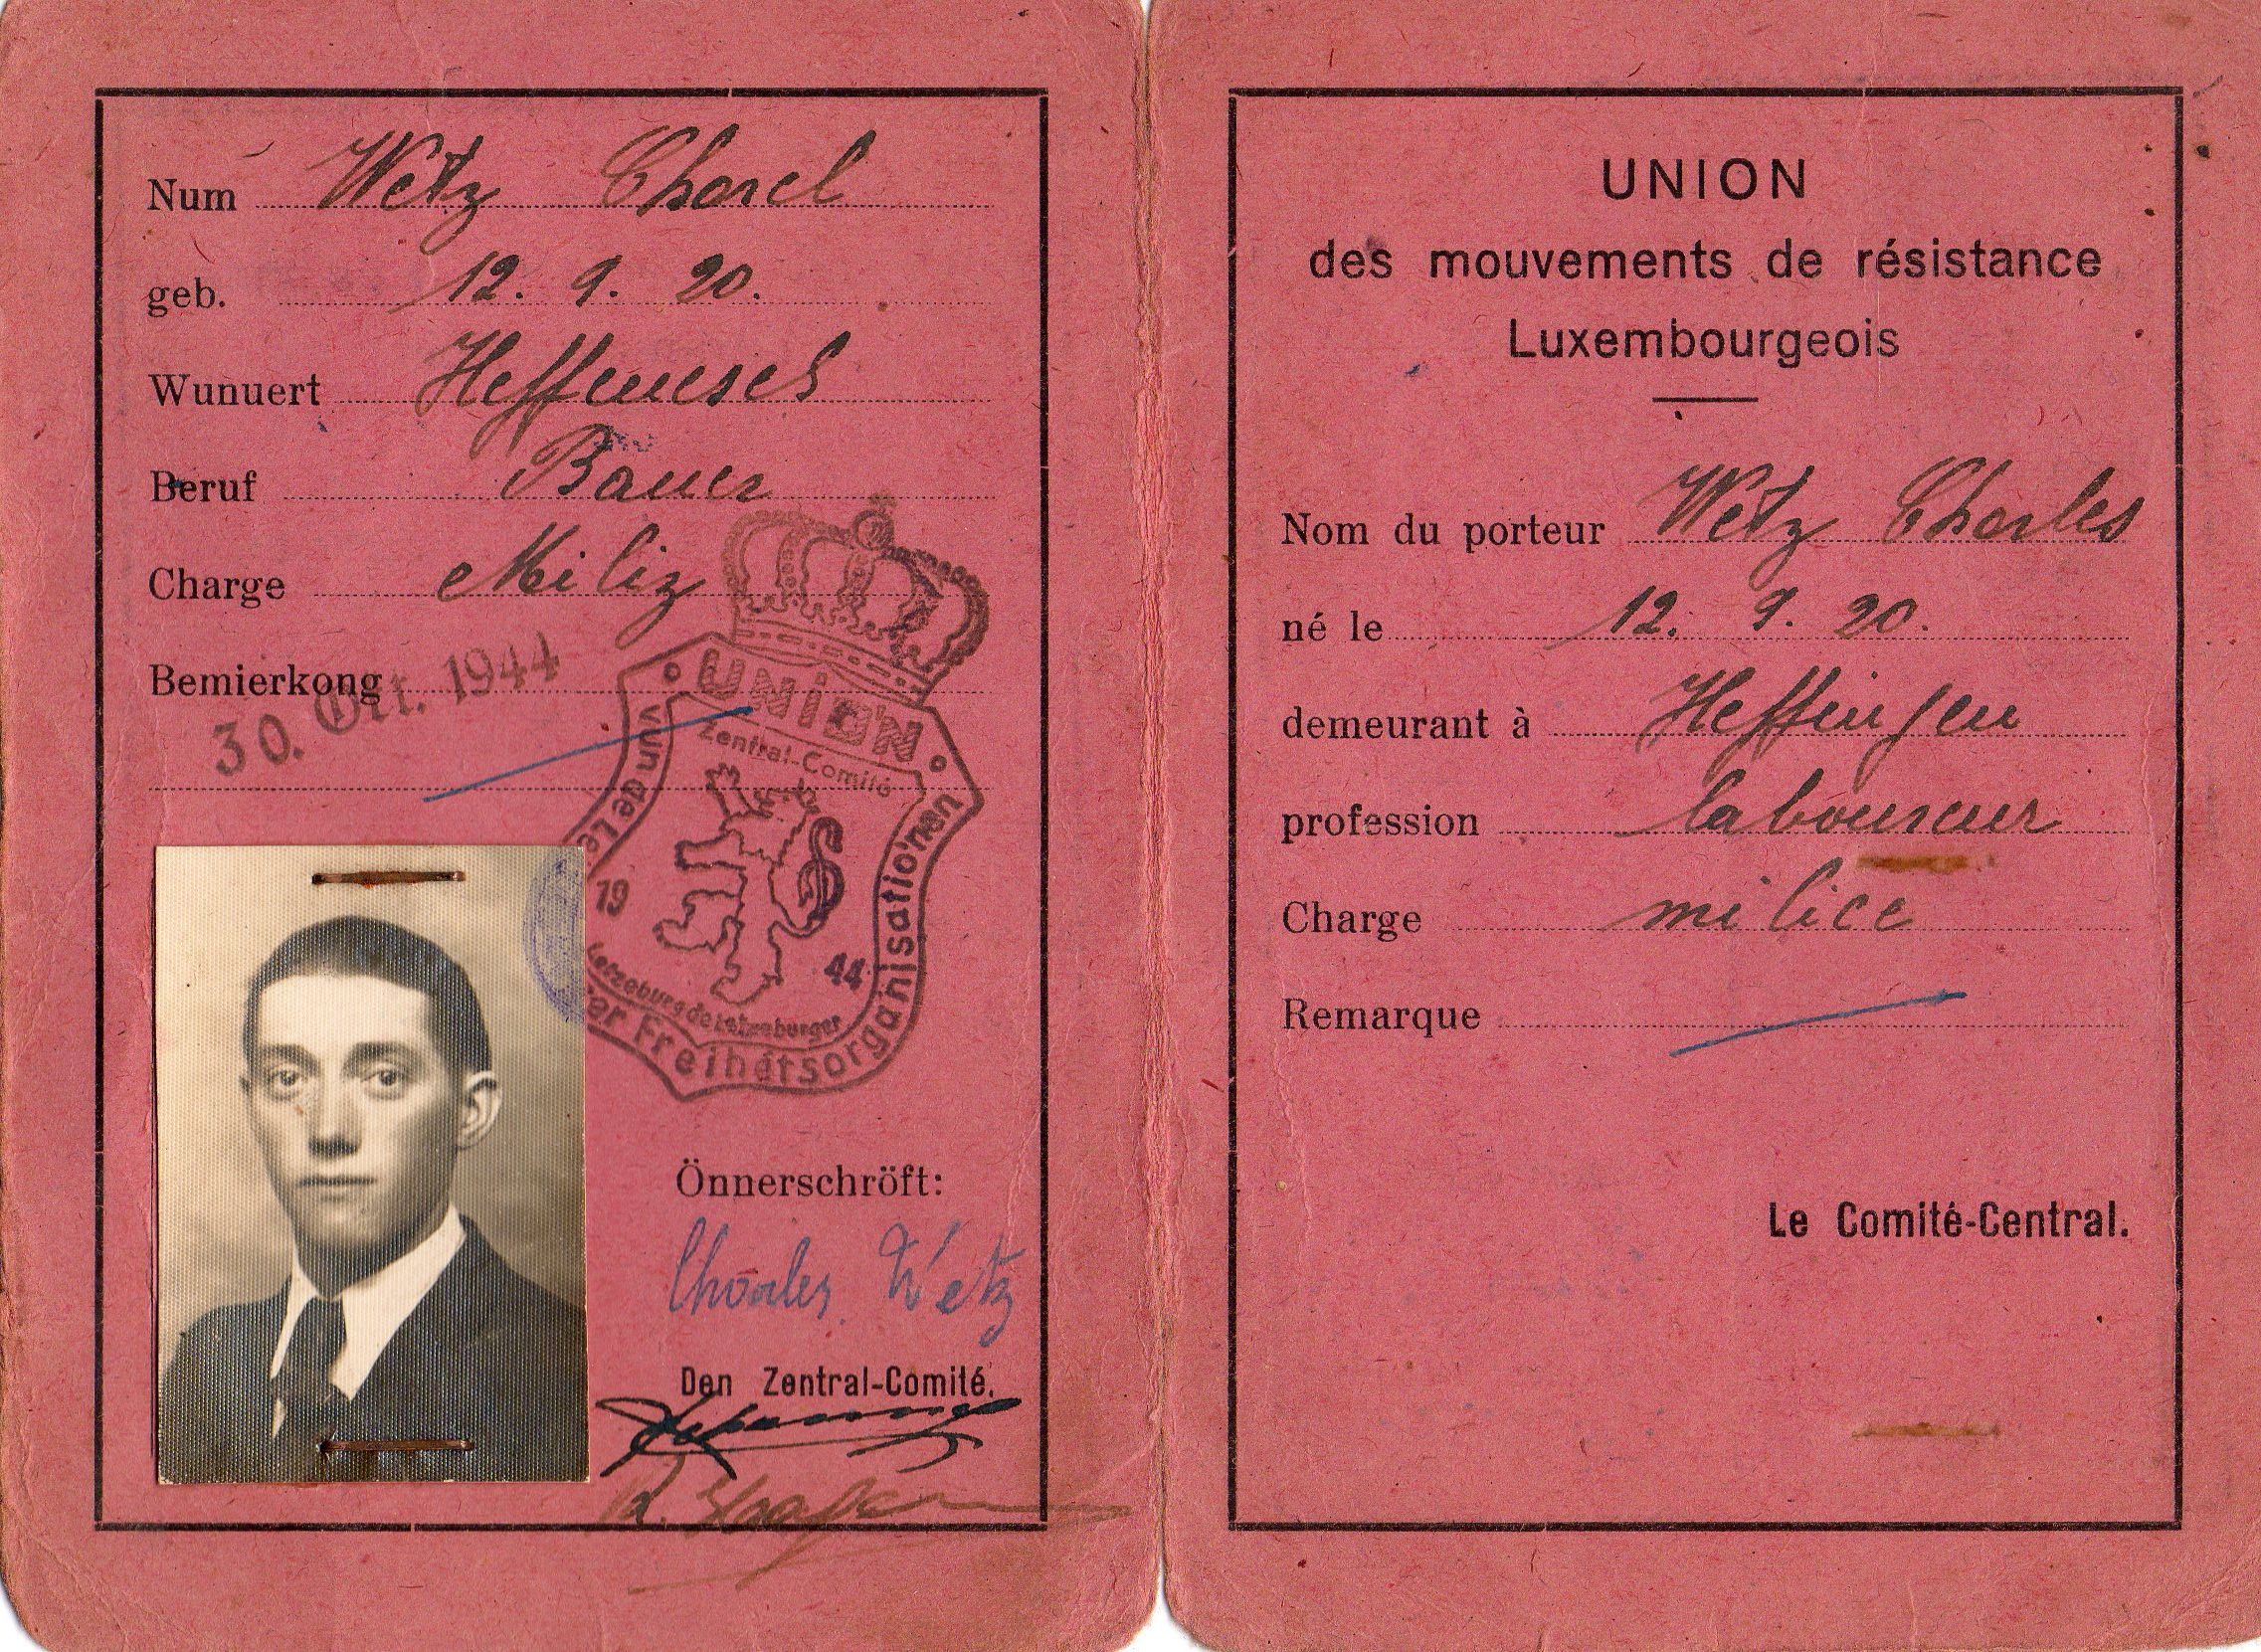 Num Wetz Charel
geb. 12. 9. 20.
Wunuert Heffenesch
Beruf Bauer
Charge Miliz
Bemierkong
30. Okt. 1944
UNION
Zentral-Comité
vun de Le
er Freihétsorganisationen
19 44
Letzeburg de Letzeburger
Önnerschrőft:
Charles Wetz
Den Zentral-Comité.
UNION
des mouvements de résistance
Luxembourgeois
Nom du porteur Wetz Charles
né le 12. 9. 20.
demeurant à Heffingen
profession laboureur
Charge milice
Remarque
Le Comité-Central.